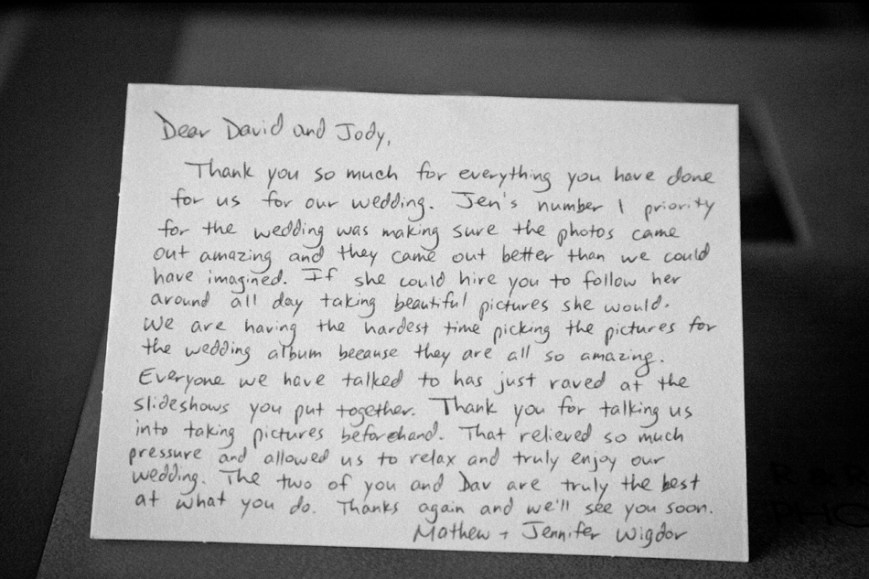 Dear David and Jody,
Thank you so much for everything you have done
for us for our wedding. Jen's number 1 priority
for the wedding was making sure the photos came
out amazing and they came out better than we could
have imagined. If she could hire you to follow her
around all day taking beautiful pictures she would.
We are having the hardest time picking the pictures for
the wedding album because they are all so amazing.
Everyone we have talked to has just raved at the
slideshows you put together. Thank you for talking us
into taking pictures beforehand. That relieved so much
pressure and allowed us to relax and truly enjoy our
wedding. The two of you and Dav are truly the best
at what you do. Thanks again and we'll see you soon.
Mathew + Jennifer Wigdor